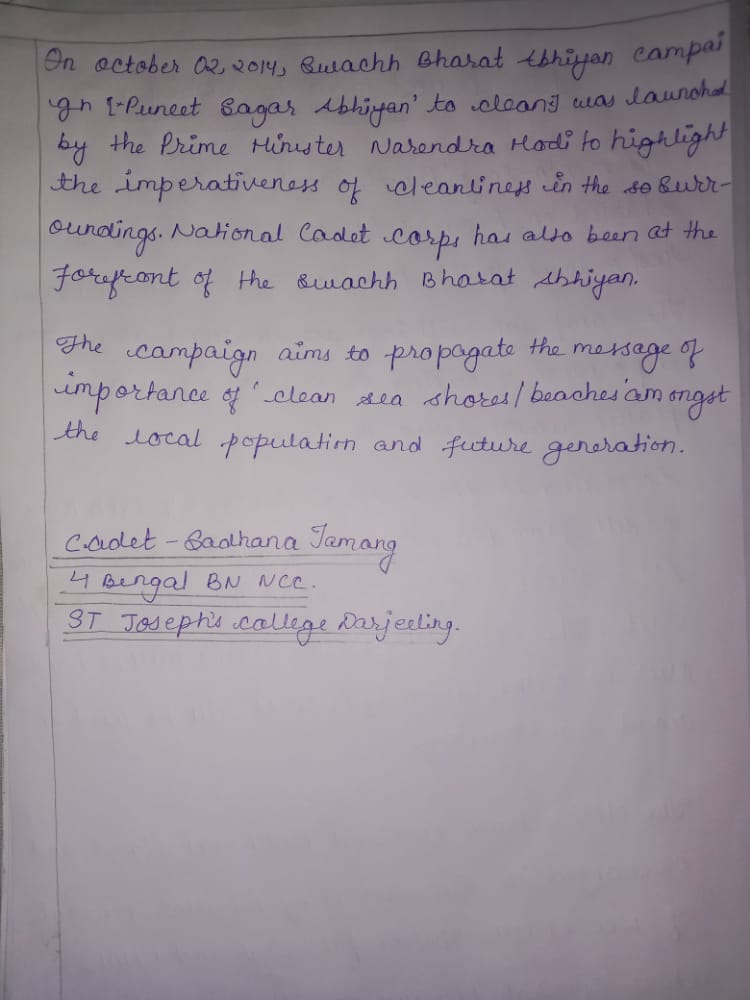 On October 02, 2014, Swachh Bharat Abhiyan campai
gn [-Puneet Sagar Abhiyan' to clean] was launched
by the Prime Minister Narendra Modi to highlight
the imperativeness of cleanliness in the so Surr-
oundings. National Cadet Corps has also been at the
forefront of the Swachh Bharat Abhiyan.
The campaign aims to propagate the message of
importance of 'clean sea shores/beaches' amongst
the local population and future generation.
Cadet - Sadhana Tamang
4 Bengal BN NCC.
ST Joseph's College Darjeeling.